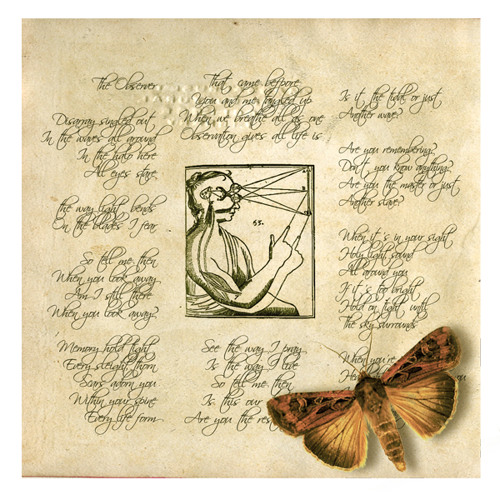 The Observer
Disarray singled out
In the waves all around
In the halo here
All eyes stare
the way light bends
On the blades I fear
So tell me then
When you look away
Am I still there
When you look away?
Memory hold tight
Every sleight thorn
Scars adorn you
Within your spine
Every life form
That came before
You and me tangled up
When we breathe all as one
Observation gives all life is
53.
See the way I pray
Is the way I love
So tell me then
Is this our
Are you the
Is it the tidal or just
Another wave?
Are you remembering?
Don't you know anything?
Are you the master or just
Another slave?
When it's in your sight
Holy light sound
All around you
If it's too bright
Hold on tight until
The sky surrounds
When you're